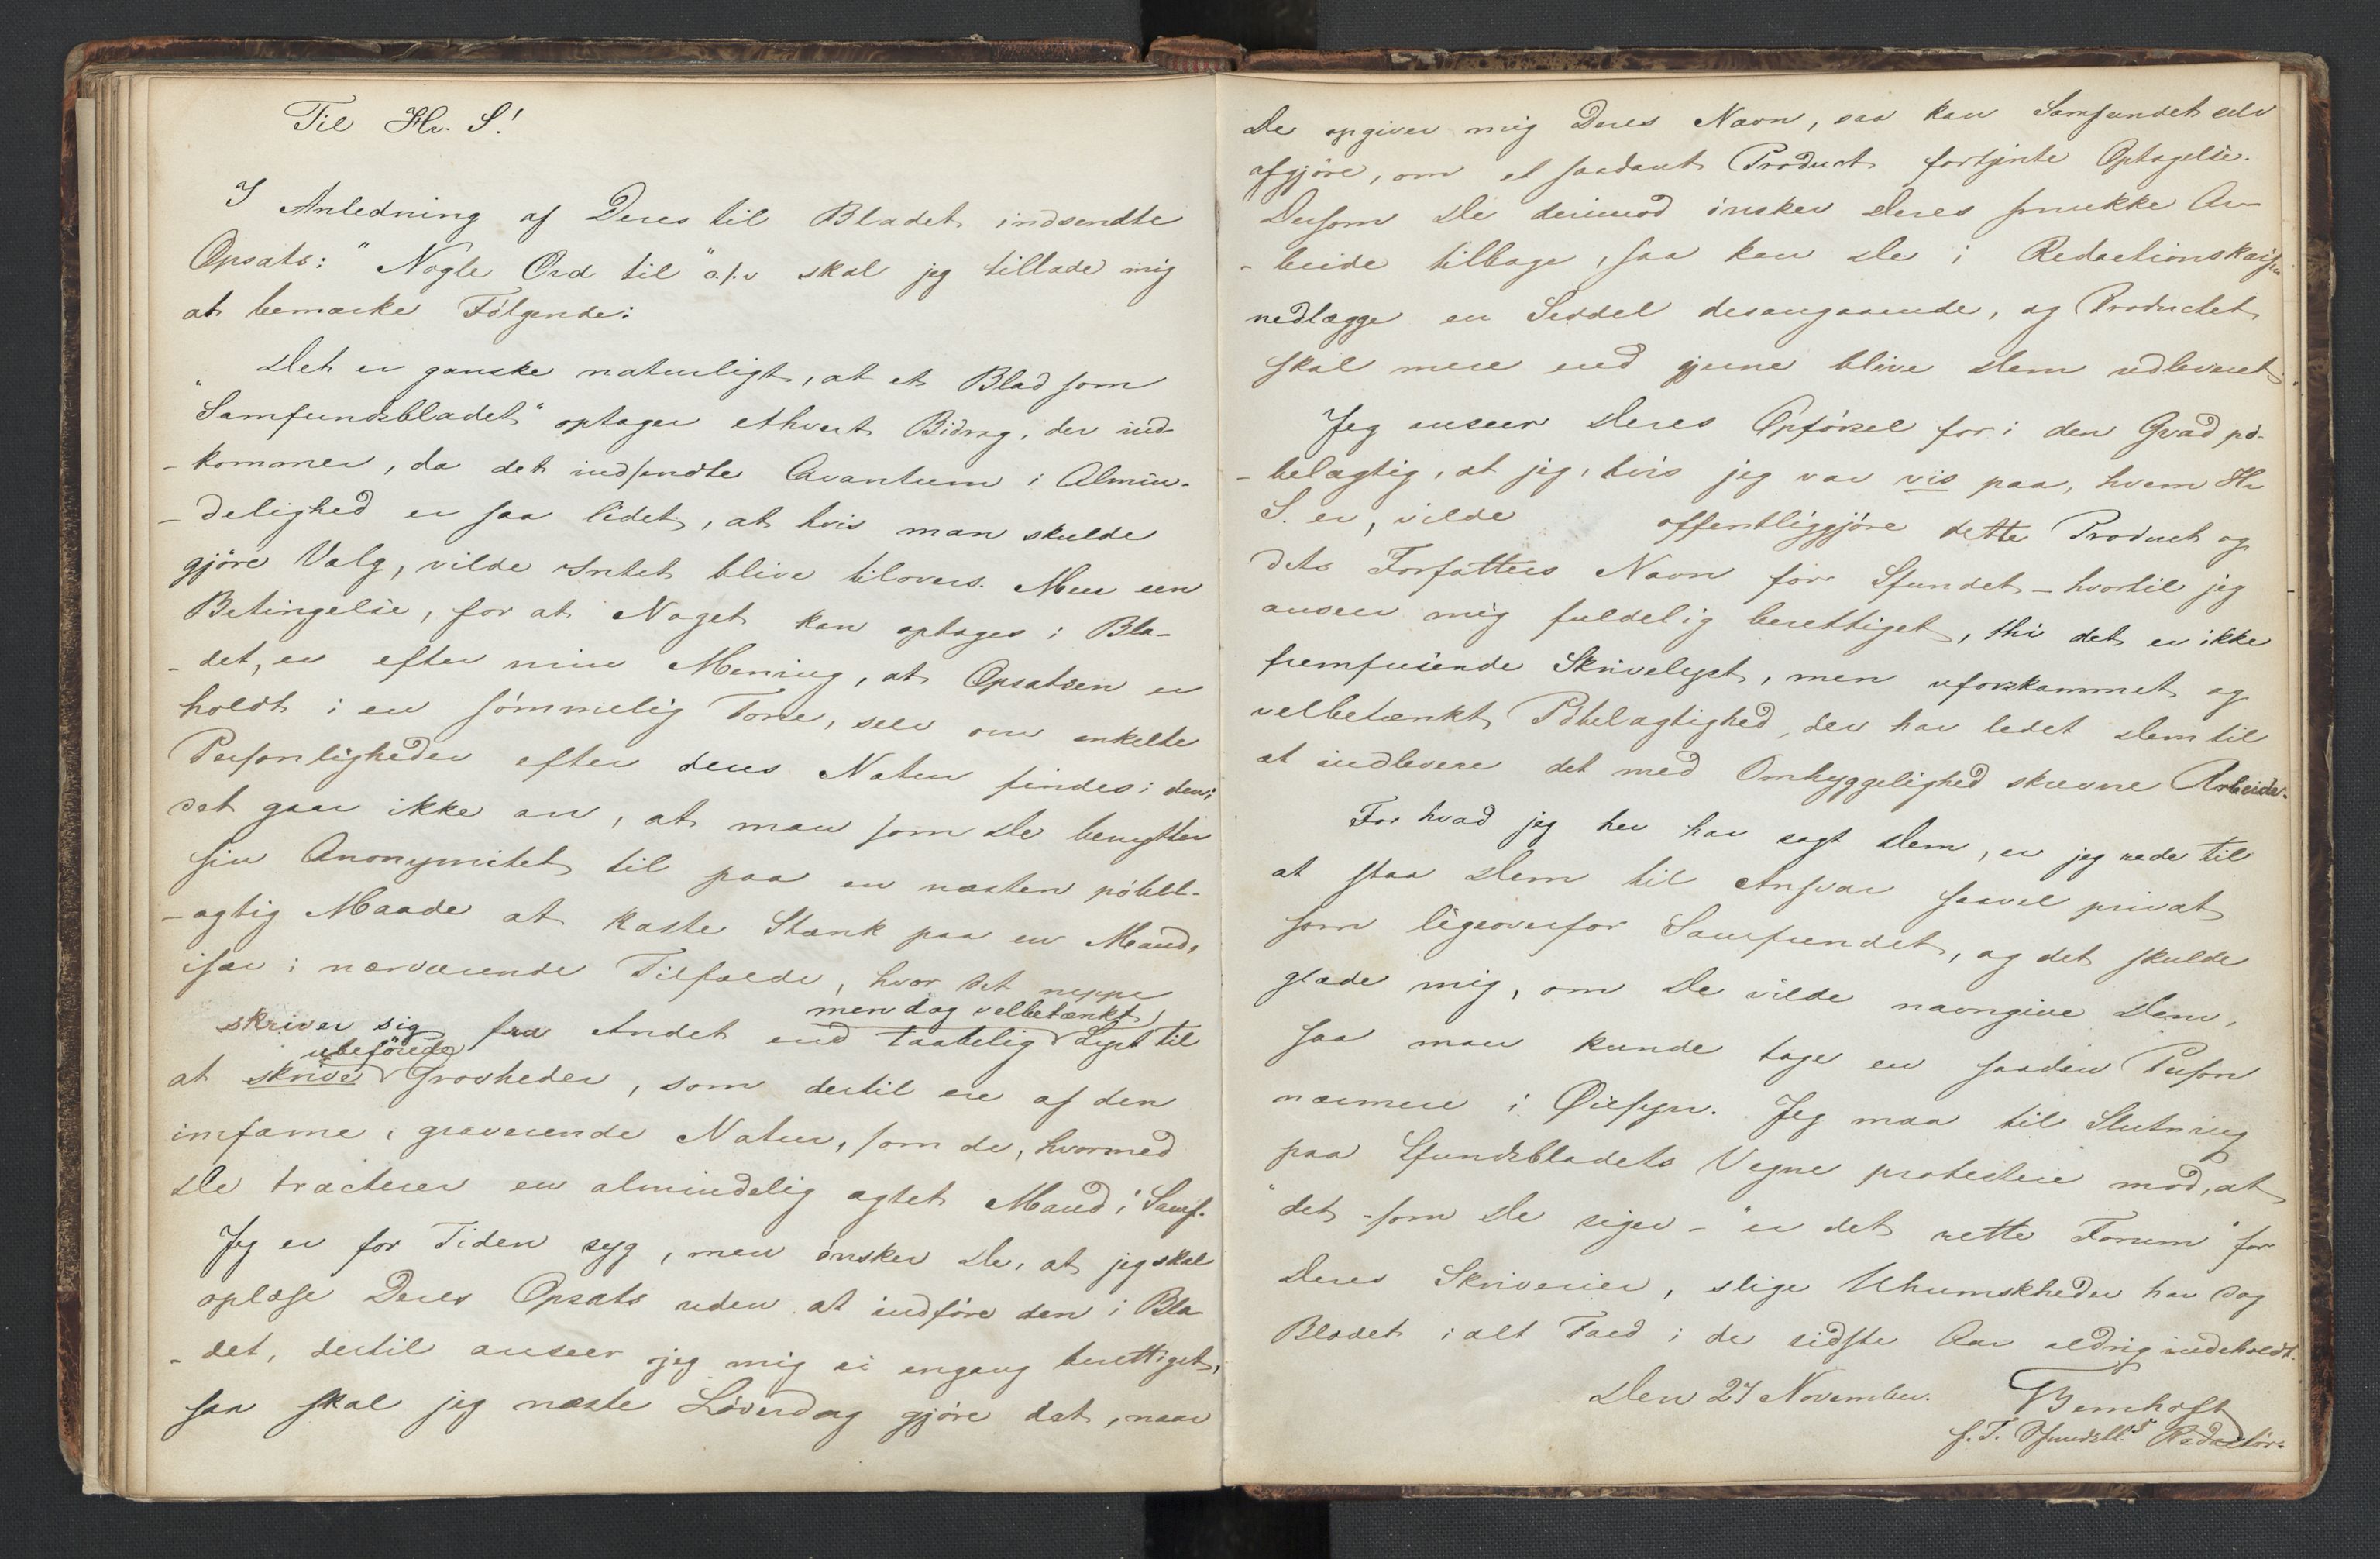 Til Hr. S!
I Anledning af Deres til Bladet indsendte
Opsats: "Nogle Ord til" o.s.v skal jeg tillade mig
at bemærke Følgende:
Det er ganske naturligt, at et Blad som
"Samfundsbladet" optager ethvert Bidrag, der ind-
-kommer, da det indsendte Qvantum i Almin-
-delighed er saa lidet, at hvis man skulde
gjöre Valg, vilde Intet blive tilovers. Men een
Betingelse, for at Noget kan optages i Bla-
-det, er efter min Mening, at Opsatsen er
holdt i en sömmelig Tone, selv om enkelte
Personligheder efter deres Natur findes i den;
det gaar ikke an, at man som De benytter
sin Anonymitet til paa en næsten pöbel-
-agtig Maade at kaste Stænk paa en Mand,
især i nærværende Tilfælde, hvor det neppe
men dog velbetænkt
skriver sig fra Andet end taabelig Lyst til
ubeföiede
at skrive Grovheder, som dertil ere af den
infame, graverende Natur, som de, hvormed
De tracterer en almindelig agtet Mand i Samf.
Jeg er for Tiden syg, men önsker De, at jeg skal
oplæse Deres Opsats uden at indföre den i Bla
-det, dertil anseer jeg mig ei engang berettiget,
saa skal jeg næste Löverdag gjöre det, naar
De opgiver mig Deres Navn, saa kan Samfundet selv
afgjöre, om et saadant Product fortjente Optagelse.
Dersom De derimod önsker Deres smukke Ar-
-beide tilbage, saa kan De i Redactionskassen
nedlægge en Seddel desangaaende, og Productet
skal mere end gjerne blive Dem udleveret.
Jeg anseer Deres Opförsel for i den Grad pö-
-belagtig, at jeg, hvis jeg var vis paa, hvem Hr
S. er, vilde offentliggjöre dette Product og
dets Forfatters Navn for Sfundet - hvortil jeg
anseer mig fuldelig berettiget, thi det er ikke
fremfusende Skrivelyst, men uforskammet og
velbetænkt Pöbelagtighed, der har ledet Dem til
at indlevere det med Omhyggelighed skrevne Arbeide.
For hvad jeg her har sagt Dem, er jeg rede til
at staa Dem til Ansvar saavel privat
som ligeoverfor Samfundet, og det skulde
glæde mig, om De vilde navngive Dem,
saa man kunde tage en saadan Person
nærmere i Øiesyn. Jeg maa til Slutning
paa Sfundsbladets Vegne protestere mod, at
"det - som De siger - "er det rette Forum" for
Deres Skriverier, slige Uhumskheder har dog
Bladet i alt Fald i de sidste Aar aldrig indeholdt.
Den 27 November. Bernhoft
f. T. Sfundsbl.s Redactör.